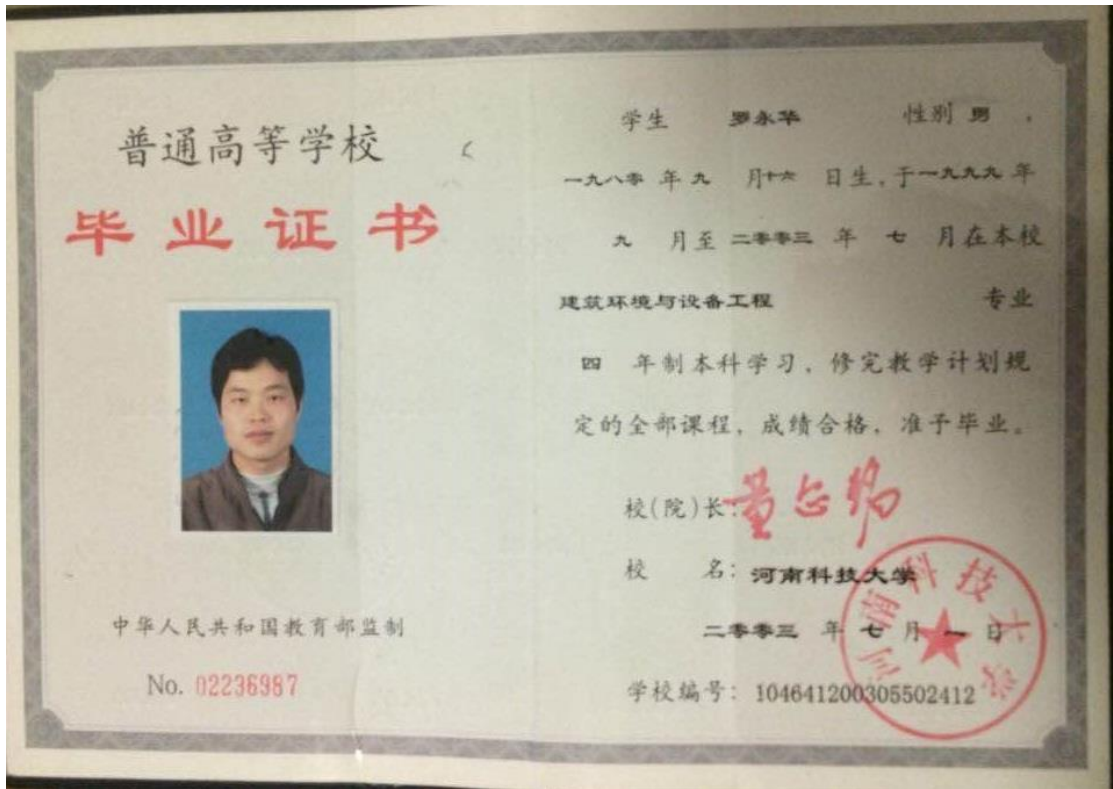 普通高等学校
毕业证书
中华人民共和国教育部监制
No. 02236987
学生 罗永华 性别 男，
一九八零 年 九 月十六 日生，于一九九九 年
九 月至 二零零三 年 七 月在本校
建筑环境与设备工程 专业
四 年制本科学习，修完教学计划规
定的全部课程，成绩合格，准予毕业。
校(院)长：
校 名：河南科技大学
二零零三 年 七 月 一 日
学校编号：104641200305502412
河南科技大学